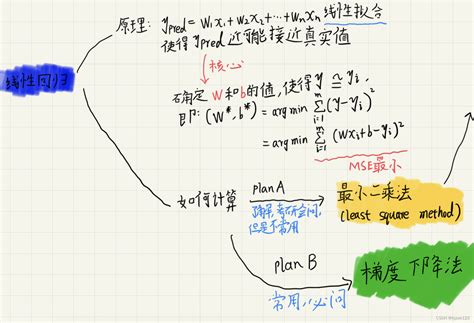 线性回归
原理: ypred = w₁x₁ + w₂x₂ + ⋯ + wₙxₙ 线性拟合
使得 ypred 近可能接近真实值
核心
确定 w 和 b 的值, 使得 y ≅ yᵢ,
即: (w*, b*) = arg min ∑ᵢ₌₁ᵐ (y - yᵢ)²
= arg min ∑ᵢ₌₁ᵐ (wxᵢ + b - yᵢ)²
MSE最小
如何计算
plan A
但是不常用
最小二乘法
(least square method)
plan B
常用, 必问
梯度下降法